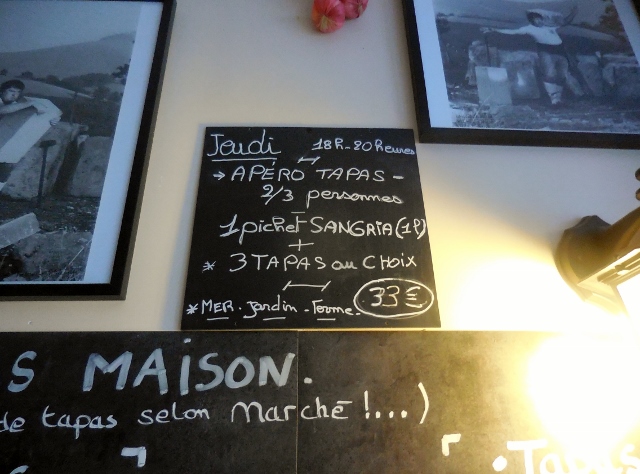 Jeudi 18h-20heures
→ APÉRO TAPAS -
2/3 personnes
1 pichet SANGRIA (1l)
+
* 3 TAPAS au CHOIX
* MER. Jardin - Ferme. 33€
S MAISON.
de tapas selon Marché !...)
• Tapas